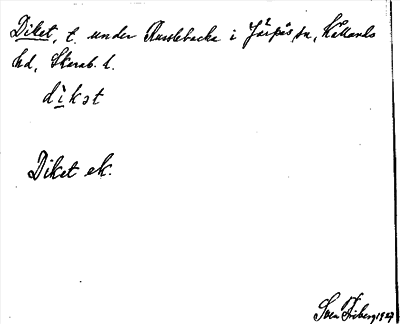 Diket, t. under Russlebacka i Järpås sn, Kållands
hd, Skarab. l.
dìkət
Diket ek.
Sven Friberg 1927